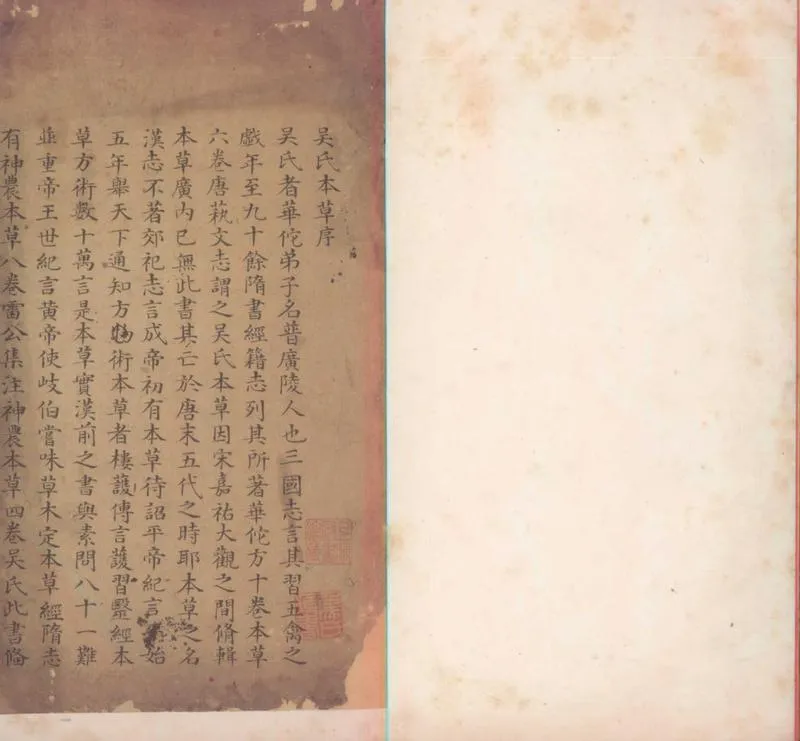 吳氏本草序
吳氏者華佗弟子名普廣陵人也三國志言其習五禽之
戲年至九十餘隋書經籍志列其所著華佗方十卷本草
六卷唐藝文志謂之吳氏本草因宋嘉祐大觀之間脩輯
本草廣內已無此書其亡於唐末五代之時耶本草之名
漢志不著郊祀志言成帝初有本草待詔平帝紀言元始
五年舉天下通知方物術本草者樓護傳言護習醫經本
草方術數十萬言是本草實漢前之書與素問八十一難
並重帝王世紀言黃帝使岐伯嘗味草木定本草經隋志
有神農本草八卷雷公集注神農本草四卷吳氏此書備